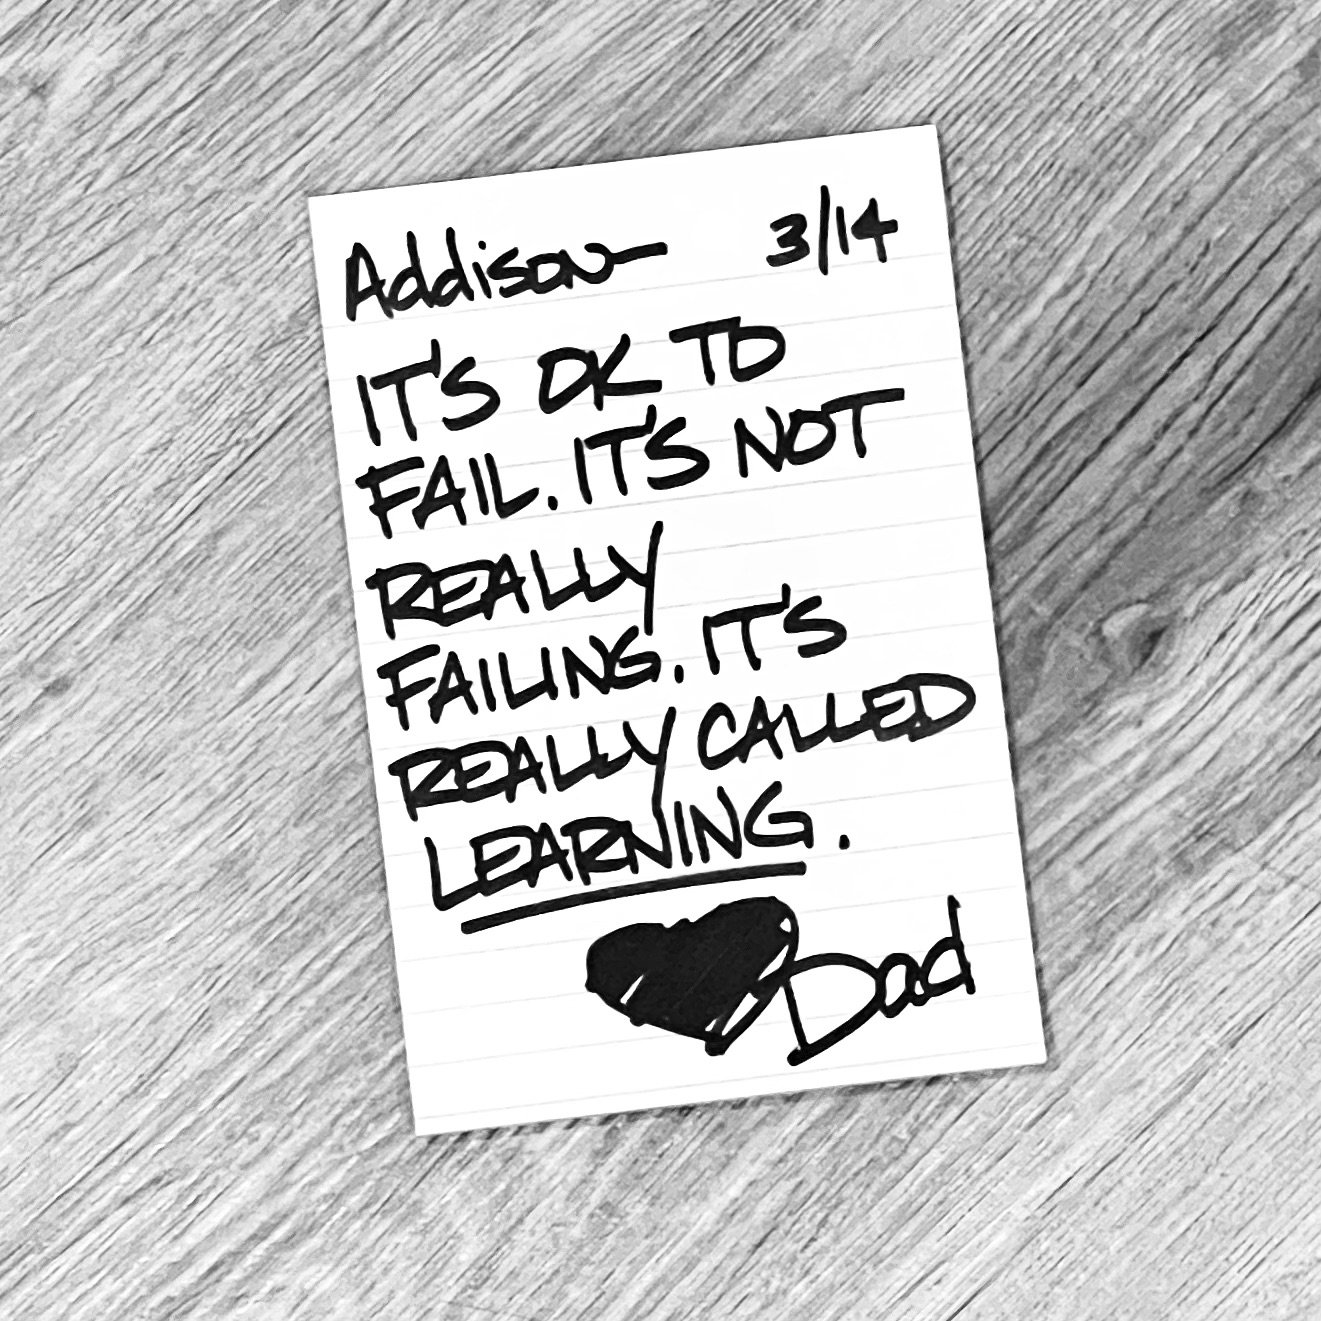 Addison— 3/14
IT'S OK TO
FAIL. IT'S NOT
REALLY
FAILING. IT'S
REALLY CALLED
LEARNING.
Dad